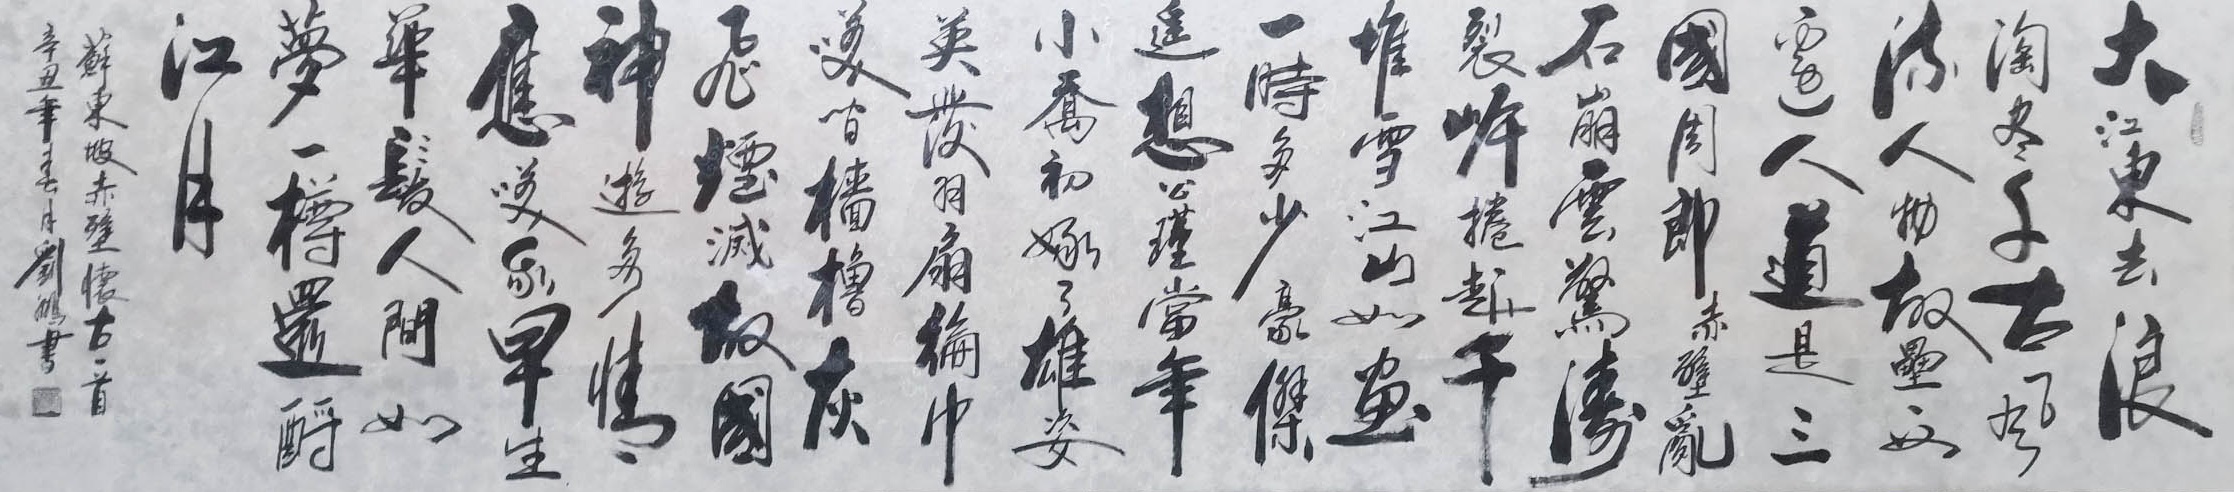 大江東去浪
淘盡千古風
流人物故壘西
邊人道是三
國周郎赤壁亂
石崩雲驚濤
裂岸捲起千
堆雪江山如画
一時多少豪傑
遥想公瑾當年
小喬初嫁了雄姿
英發羽扇綸巾
笑間檣櫓灰
飛煙滅故國
神遊多情
應笑我早生
華髮人間如
夢一樽還酹
江月
蘇東坡赤壁懷古一首
辛丑年春月劉鵬書